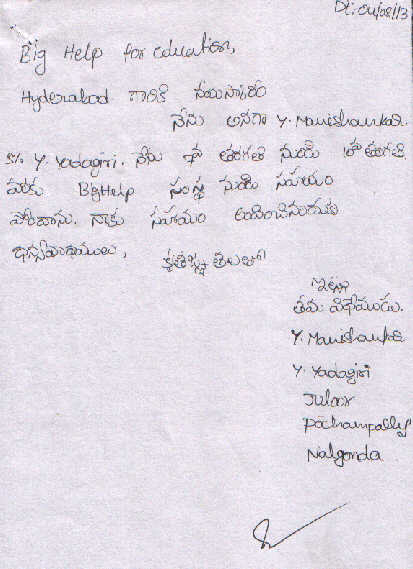 Dt: 04/08/13
Big Help for education,
Hyderabad గారికి నమస్కారం
నేను అనగా Y. Manishankar.
S/o Y. Yadagiri. నేను తరగతి నుండి తరగతి
వరకు BigHelp సంస్థ నుండి సహయం
పొందాను. నాకు సహయం అందించినందుకు
ధన్యవాదములు, కృతజ్ఞతలతో
ఇట్లు
తమ విధేయుడు.
Y. Manishankar
Y. Yadagiri
Juloor
Pochampally
Nalgonda